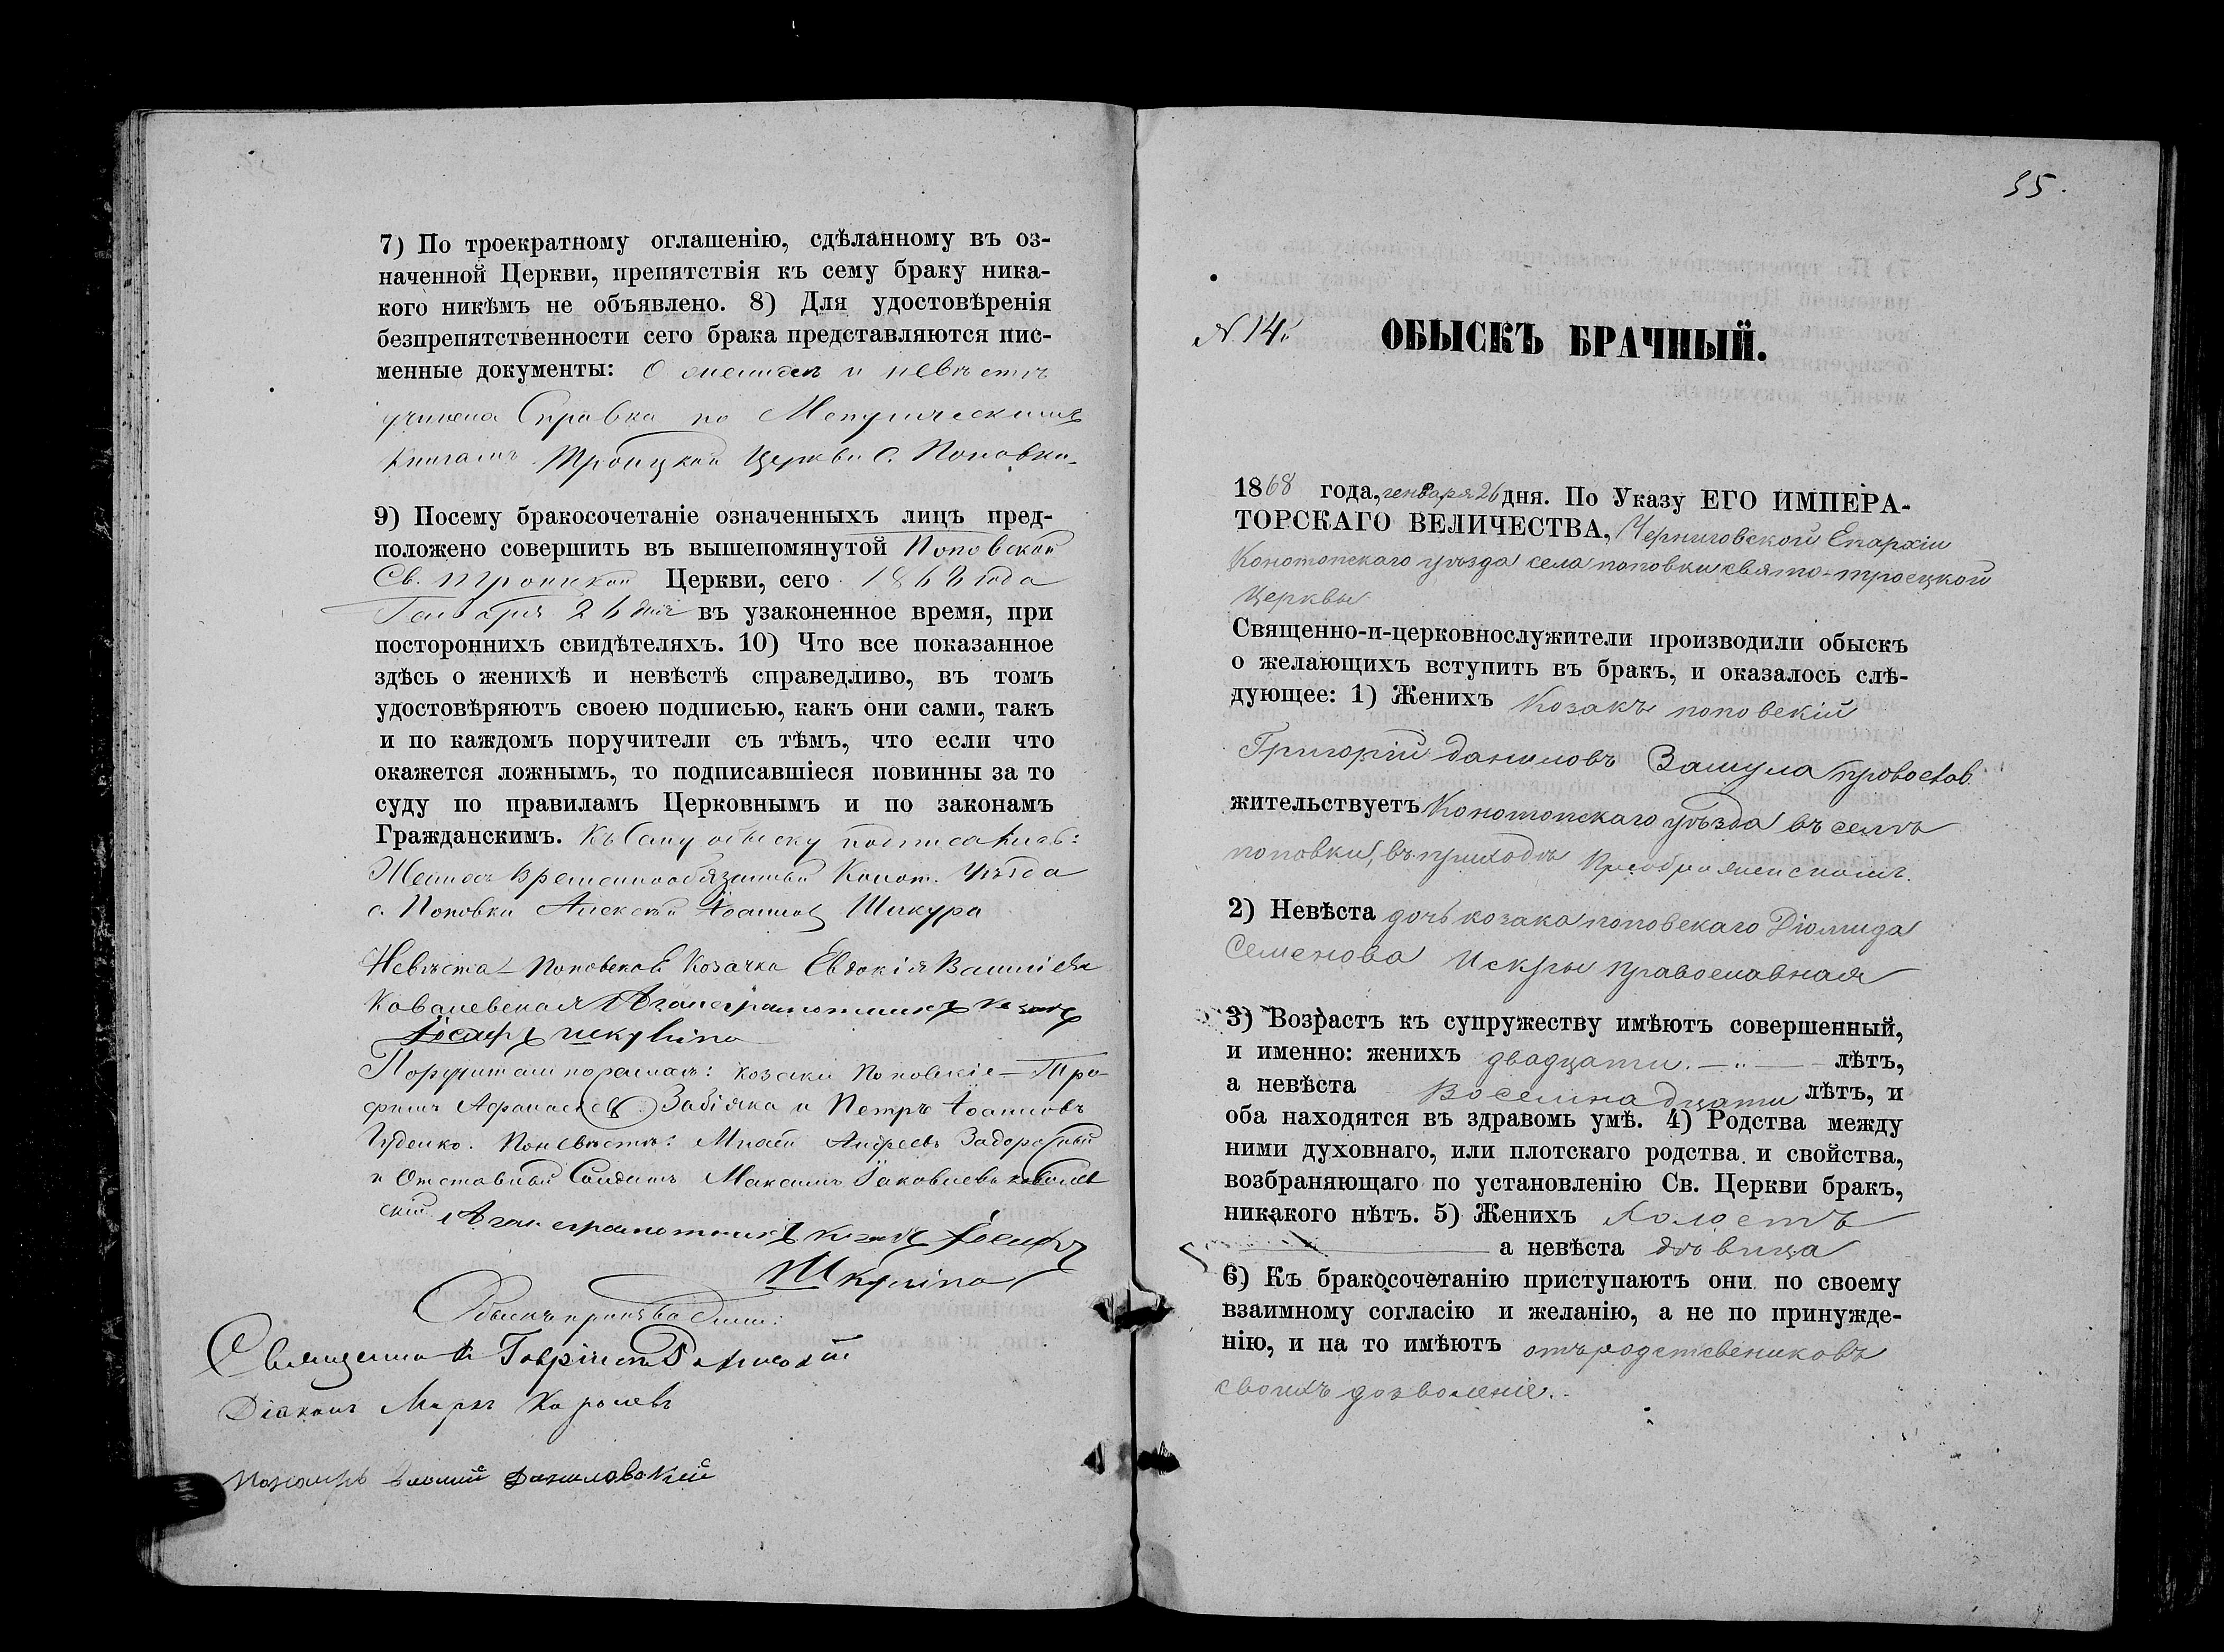 7) По троекратному оглашенію, сдѣланному въ оз-
наченной Церкви, препятствія къ сему браку ника-
кого никѣмъ не объявлено. 8) Для удостовѣренія
безпрепятственности сего брака представляются пис-
менные документы: О женихѣ и невѣстѣ
учинена Справка по Метрическимъ
Книгамъ Троицкой Церкви с. Поповки.
9) Посему бракосочетаніе означенныхъ лицъ пред-
положено совершить въ вышепомянутой Поповской
Св. Троицкой Церкви, сего 1868 года
Генваря 26 дня въ узаконенное время, при
постороннихъ свидѣтеляхъ. 10) Что все показанное
здѣсь о женихѣ и невѣстѣ справедливо, въ томъ
удостовѣряютъ своею подписью, какъ они сами, такъ
и по каждомъ поручители съ тѣмъ, что если что
окажется ложнымъ, то подписавшіеся повинны за то
суду по правиламъ Церковнымъ и по законамъ
Гражданскимъ. Къ сему обыску подписались:
Женихъ Временнообязанный Конот. Уѣзда
с. Поповки Алексѣй Іоанновъ Шкура
Невѣста – Поповская Козачка Евдокія
Ковалевская А за неграмотныхъ козакъ
Іосифъ
Поручители по женихѣ: козаки Поповскіе – Тро-
фимъ Афанасіевъ Забіяка и Петръ Іоанновъ
Гуденко. По невѣстѣ: Андреевъ Задорожный
и Отставный Солдатъ Максимъ Іаковлевъ Ковалев
скій А за неграмотныхъ козакъ Іосифъ
Обыскъ производили:
Священникъ Гавріилъ
Діаконъ Маркъ Королевъ
Пономарь Даниловскій
35.
N 14.
ОБЫСКЪ БРАЧНЫЙ.
1868 года, генваря 26 дня. По Указу ЕГО ИМПЕРА-
ТОРСКАГО ВЕЛИЧЕСТВА, Черниговской Епархіи
Конотопскаго уѣзда села поповки свято-троецкой
Церквы
Священно-и-церковнослужители производили обыскъ
о желающихъ вступить въ бракъ, и оказалось слѣ-
дующее: 1) Женихъ Козакъ поповскій
Григорій даниловъ Зашула провослав.
жительствуетъ Конотопскаго уѣзда въ селѣ
поповки, въ приходѣ Преображенскомъ.
2) Невѣста дочь козака поповскаго Діомида
Семенова Искры православная
3) Возрастъ къ супружеству имѣютъ совершенный,
и именно: женихъ двадцати. — „ — лѣтъ,
а невѣста Восемнадцати лѣтъ, и
оба находятся въ здравомъ умѣ. 4) Родства между
ними духовнаго, или плотскаго родства и свойства,
возбраняющаго по установленію Св. Церкви бракъ,
никакого нѣтъ. 5) Женихъ холостъ
а невѣста дѣвица
6) Къ бракосочетанію приступаютъ они по своему
взаимному согласію и желанію, а не по принужде-
нію, и на то имѣютъ отъ родствениковъ
своихъ дозволеніе.